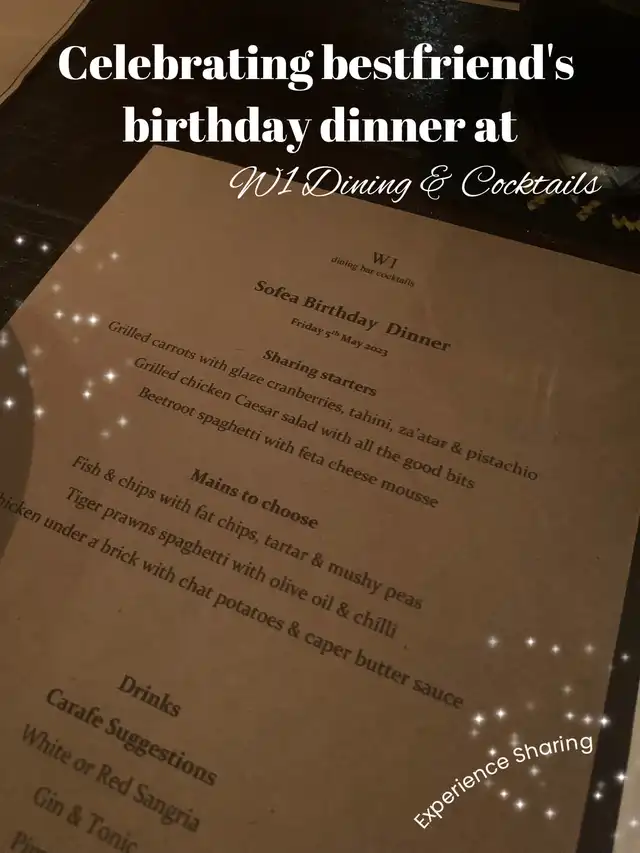 Celebrating bestfriend's
birthday dinner at
W1 Dining & Cocktails
W1
dining bar cocktails
Sofea Birthday Dinner
Friday 5th May 2023
Sharing starters
Grilled carrots with glaze cranberries, tahini, za'atar & pistachio
Grilled chicken Caesar salad with all the good bits
Beetroot spaghetti with feta cheese mousse
Mains to choose
Fish & chips with fat chips, tartar & mushy peas
Tiger prawns spaghetti with olive oil & chilli
hicken under a brick with chat potatoes & caper butter sauce
Drinks
Carafe Suggestions
White or Red Sangria
Gin & Tonic
Experience Sharing